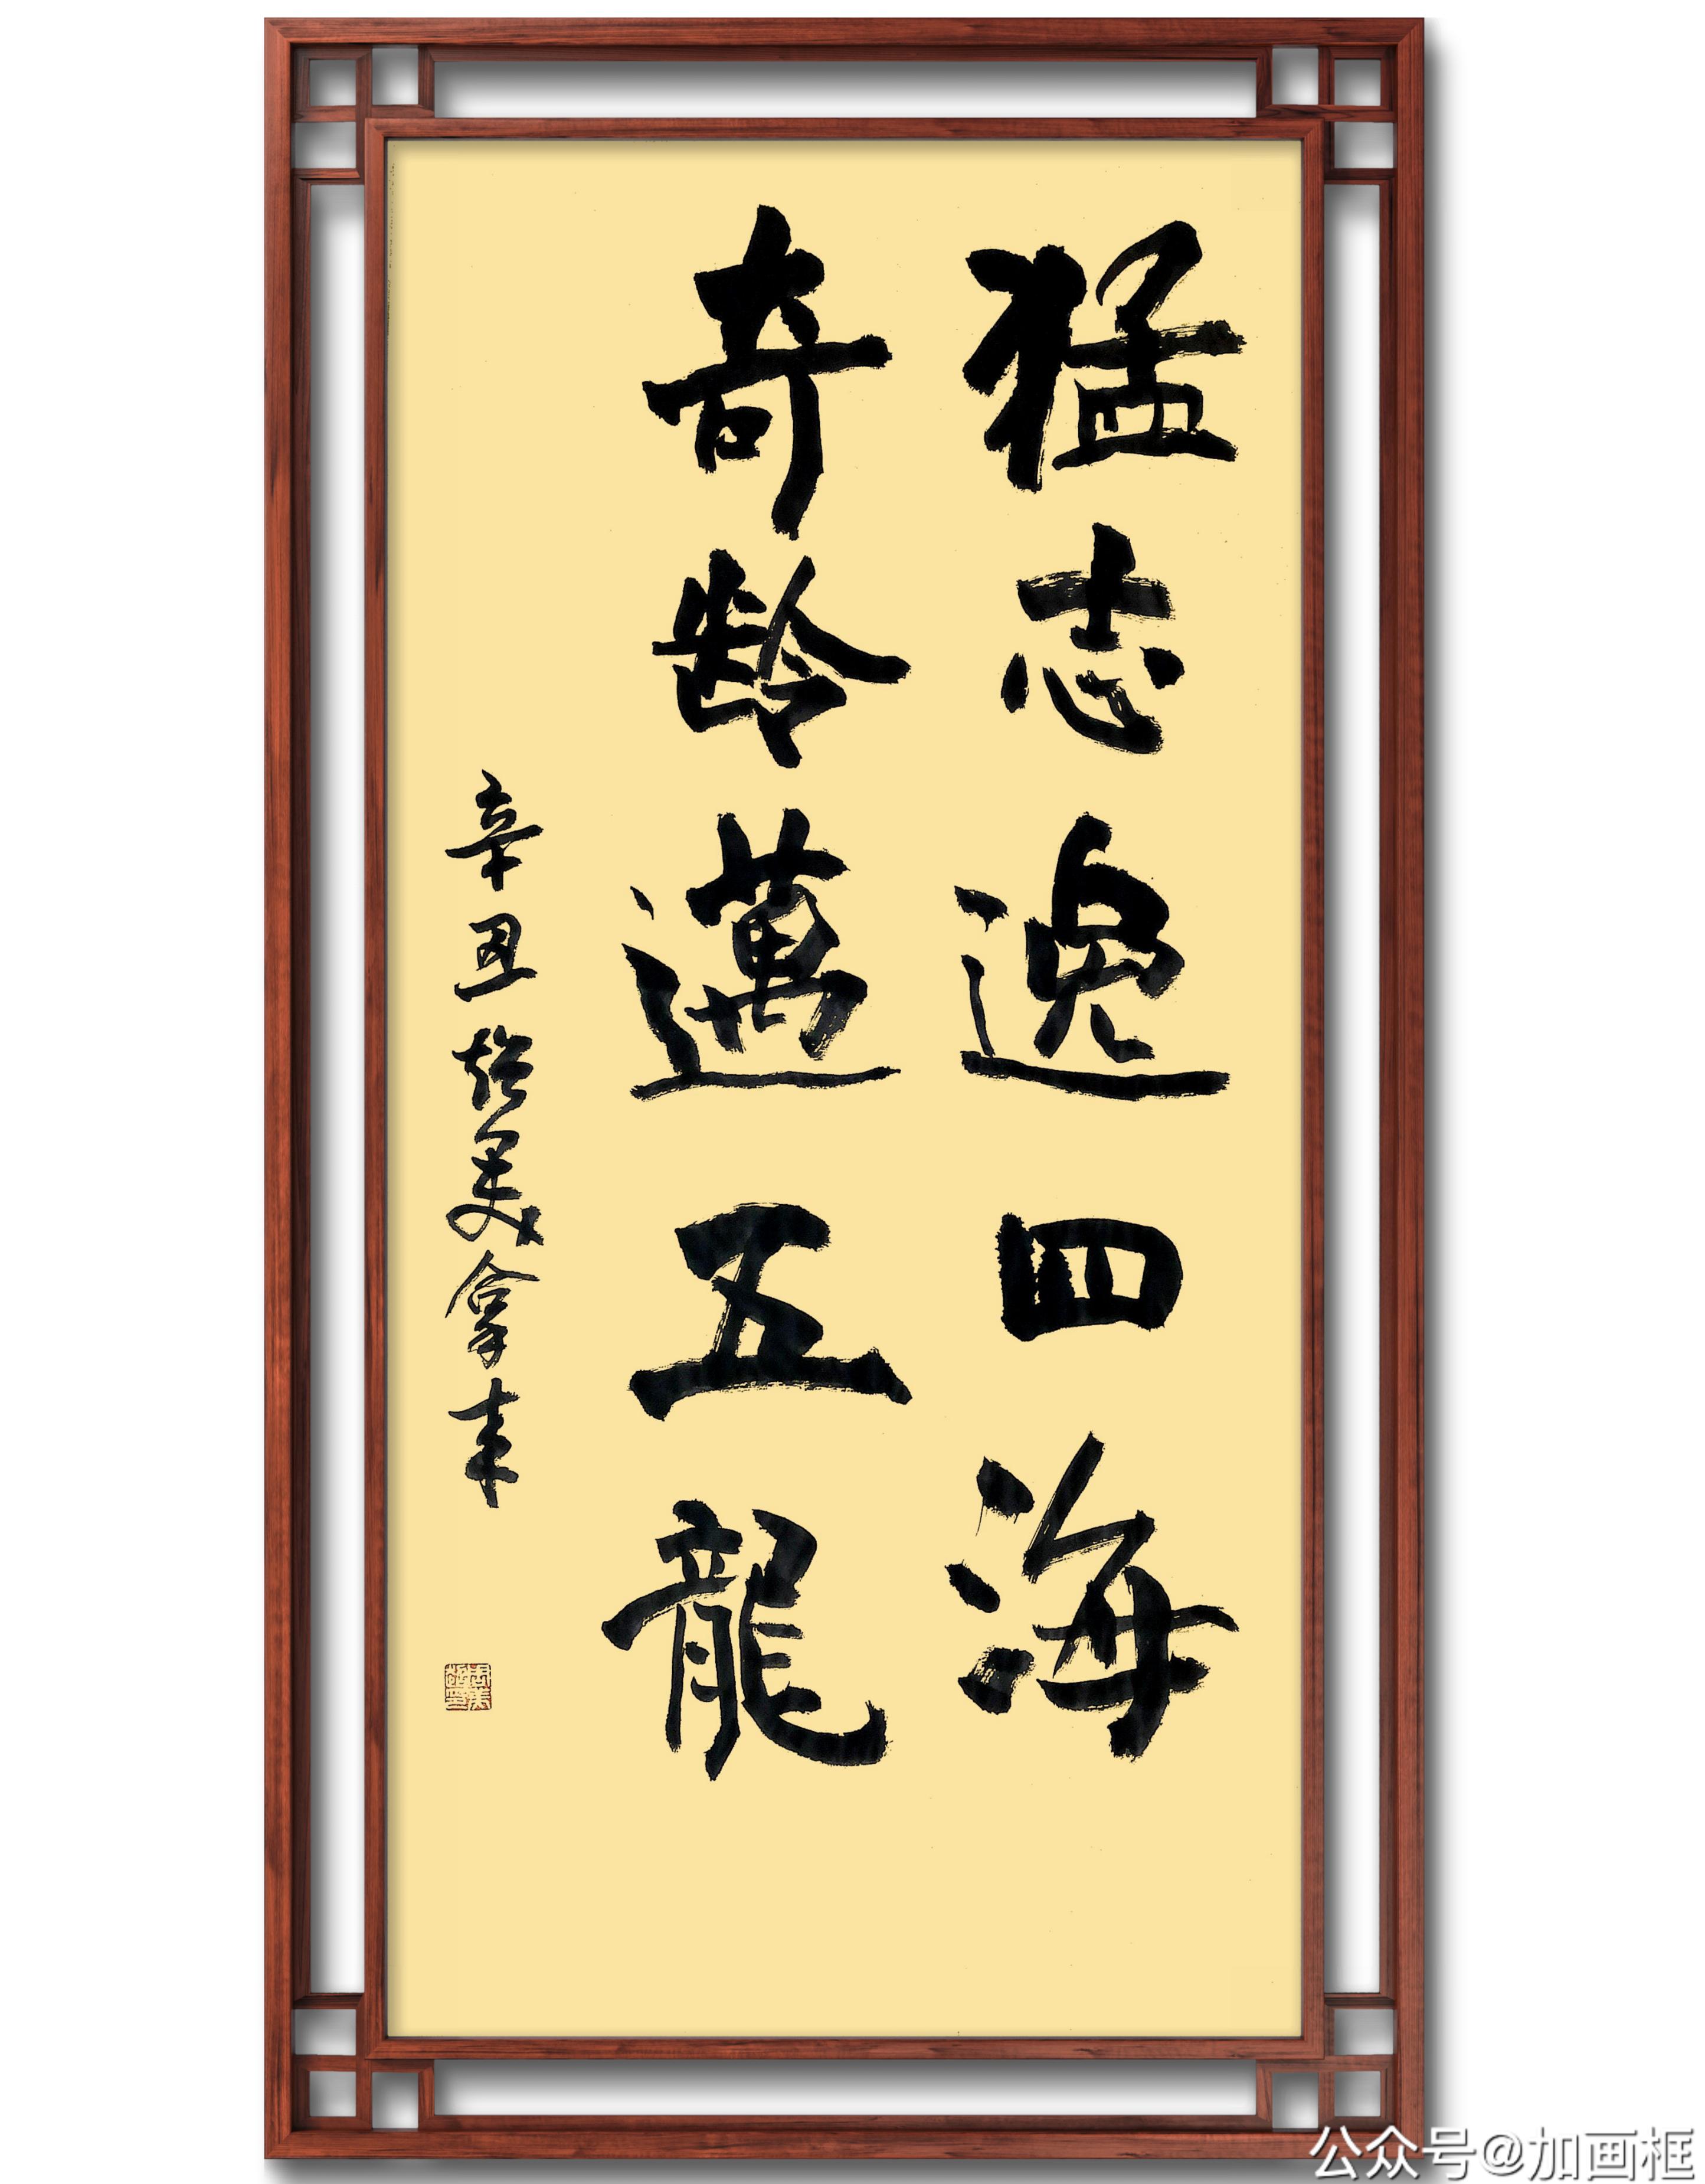 猛志逸四海
奇龄邁五龍
辛丑
公众号@加画框